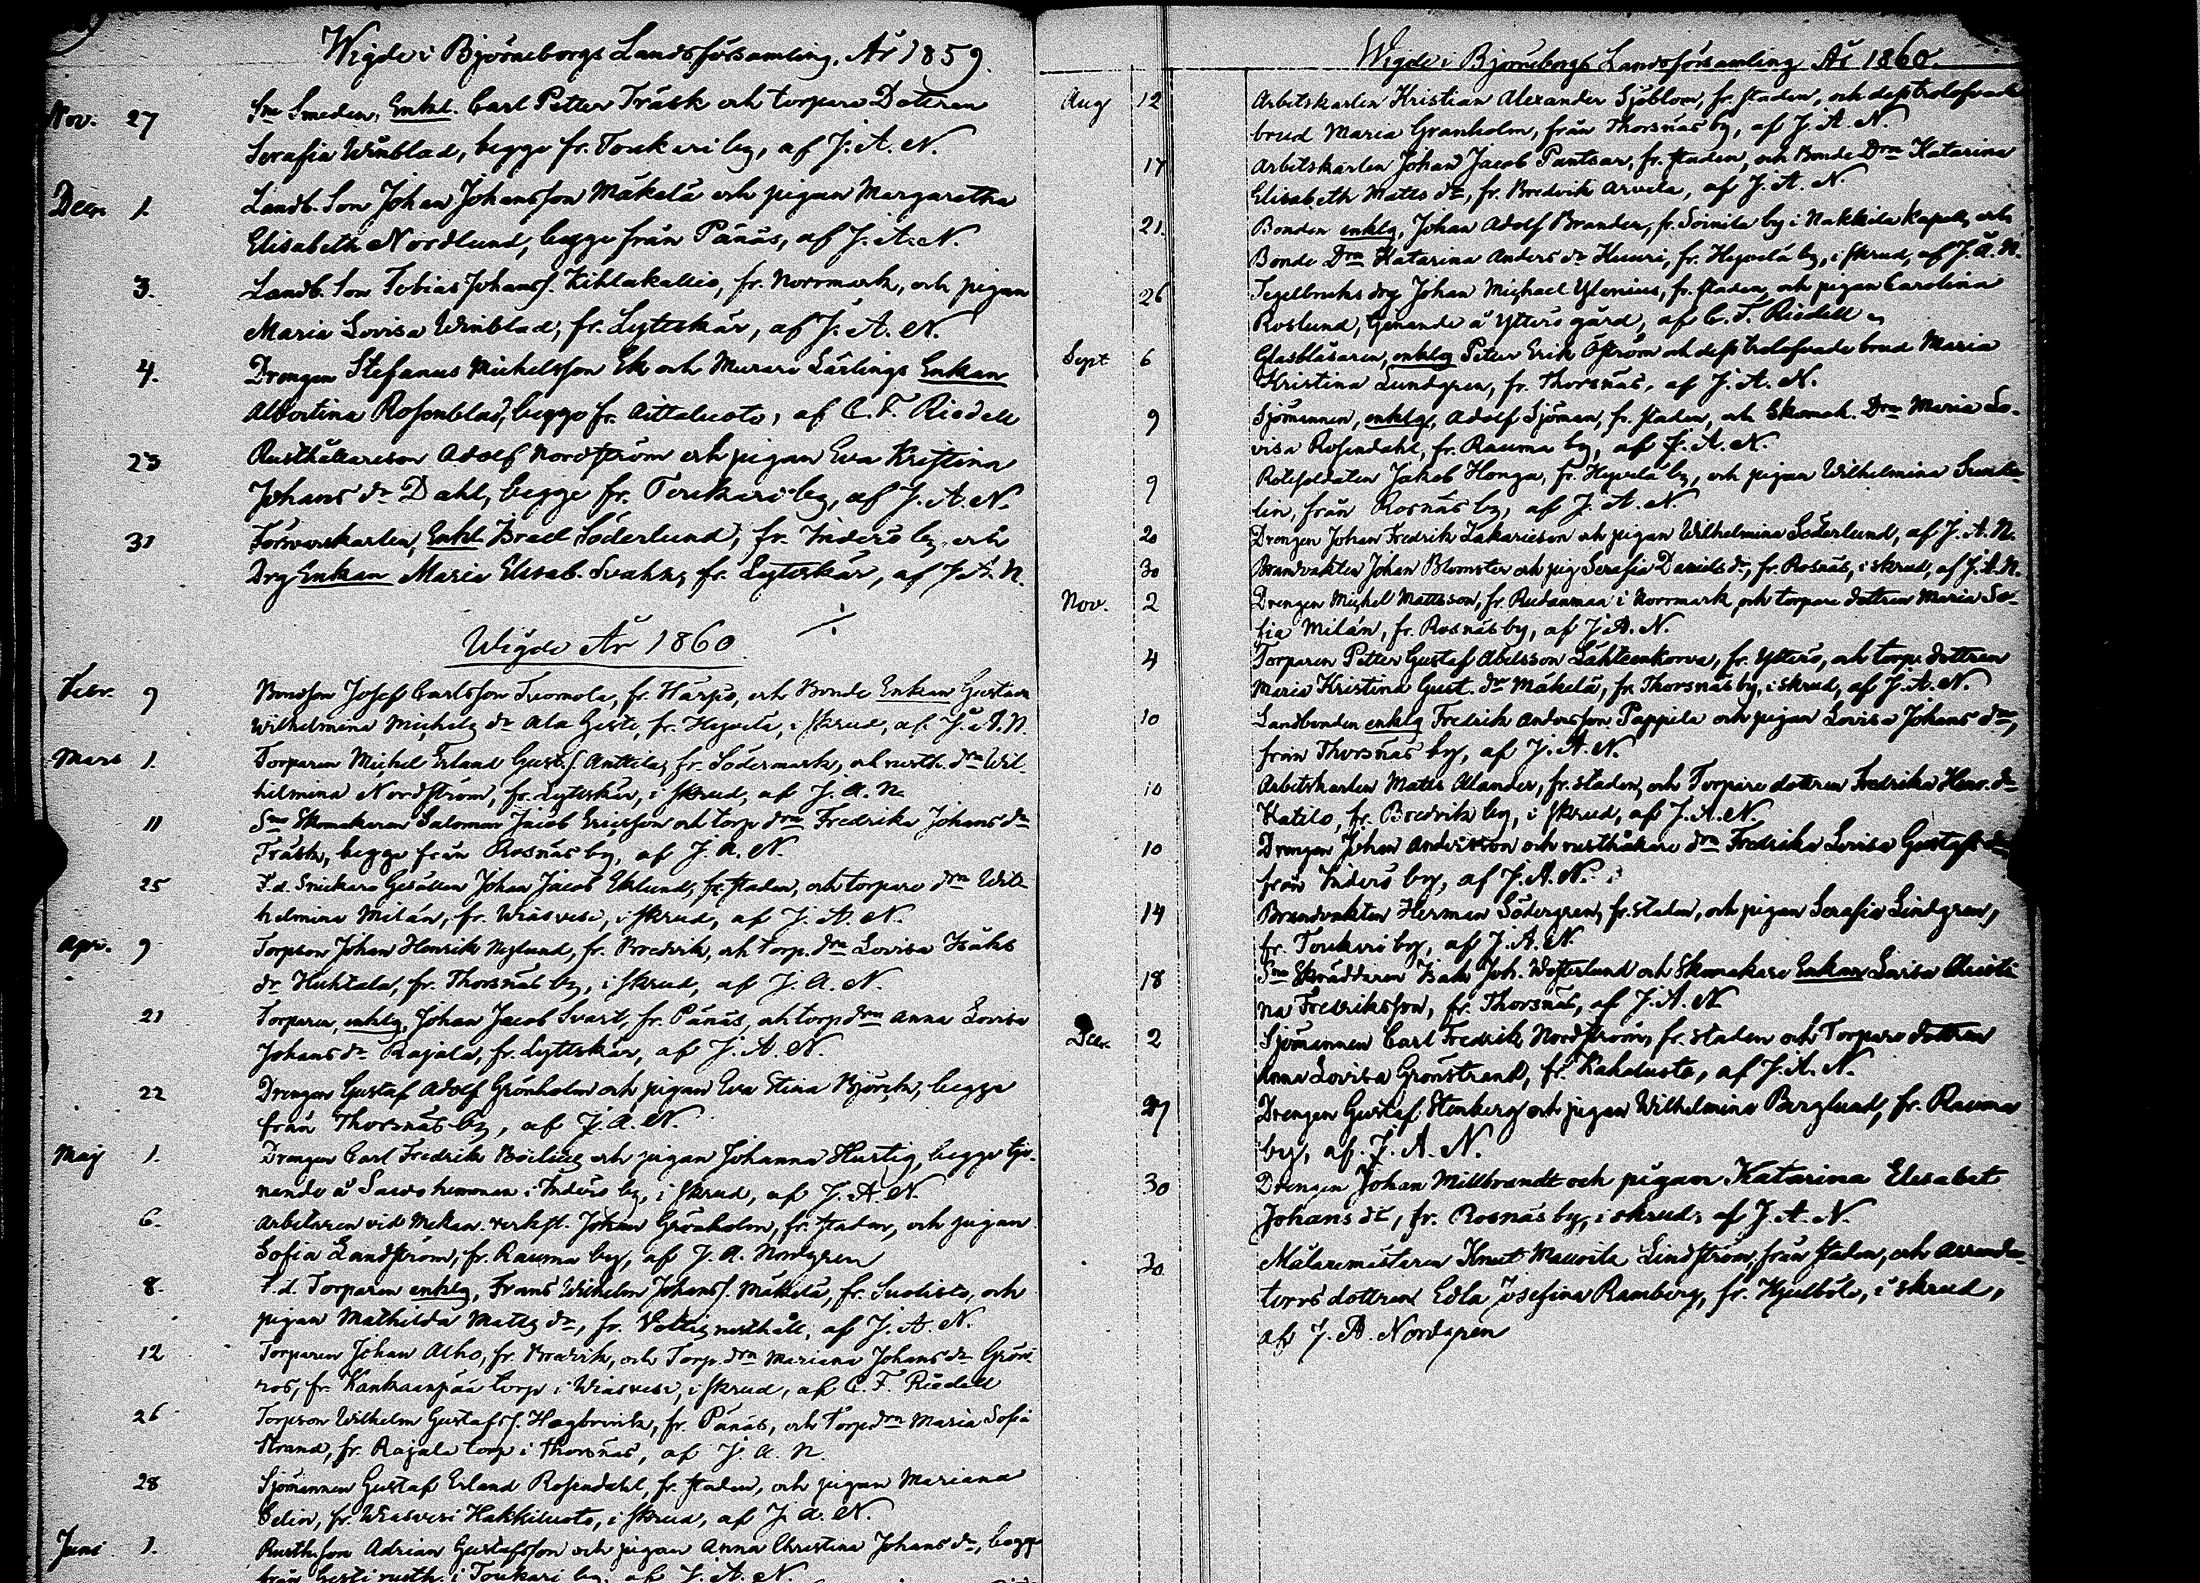 Wigde i Björneborgs Landsförsamling. År 1859.
Nov. 27 Sne Smeden, Enkl. Carl Petter Träsk och torpare Dottren
Serafia Winblad, begge fr. Toukari by, af J. A. N.
Decr. 1. Landb. Son Johan Johansson Mäkelä och pigan Margaretha
Elisabeth Nordlund, begge från Pänäs, af J. A. N.
3. Landb. Son Tobias Johanss. Kihlakallio, fr. Norrmark, och pigan
Maria Lovisa Winblad, fr. Lyttskär, af J. A. N.
4. Drengen Stefanus Michelsson Ek och Murare Lärlings Enkan
Albertina Rosenblad, begge fr. Aittaluoto, af C. F. Riedell
23 Rusthållareson Adolf Nordström och pigan Eva Kristina
Johans dr Dahl, begge fr. Toukari by, af J. A. N.
31 Försvarskarlen, Enkl. Israel Söderlund, fr. Inderö by och
Drg Enkan Maria Elisab. Svahn, fr. Lyttskär, af J. A. N.
Wigde År 1860
Febr. 9 Bondson Josef Carlsson Tuomola, fr. Harjo, och Bonde Enkan Gustava
Wilhelmina Michels dr Ala Gisti, fr. Hyvelä, i skrud, af J. A. N.
Mars 1. Torparen Michel Erland Gusts. Anttila, fr. Södermark, och rusth. drn Wil-
helmina Nordström, fr. Lyttskär, i skrud, af J. A. N.
11 Sne Skomakaren Salomon Jacob Ericsson och torp drn Fredrika Johans dr
Träsk, begge från Rosnäs by, af J. A. N.
25 F.d. Snickare Gesällen Johan Jacob Eklund, fr. staden, och torpare drn Wil-
helmina Milán, fr. Wiasvesi, i skrud, af J. A. N.
Apr. 9 Torpson Johan Henrik Nylund, fr. Bredvik, och torp. drn Lovisa Isaks
dr Huhtala, fr. Thorsnäs by, i skrud, af J. A. N.
21 Torparen, enklg, Johan Jacob Svart, fr. Pänäs, och torp drn Anna Lovisa
Johans dr Rajala, fr. Lyttskär, af J. A. N.
22 Drengen Gustaf Adolf Grönholm och pigan Eva Stina Björck, begge
från Thorsnäs by, af J. A. N.
Maj 1. Drengen Carl Fredrik Böilius och pigan Johanna Hurtig, begge tje-
nande å hemman i Inderö by, i skrud, af J. A. N.
6. Arbetaren vid Mekan. verkst. Johan Grönholm, fr. staden, och pigan
Sofia Landström, fr. Rauma by, af J. A. Nordgren
8. F.d. Torparen enklg, Frans Wilhelm Johanss. Mäkelä, fr. Suolisto, och
pigan Mathilda Matts dr, fr. rusthåll, af J. A. N.
12 Torparen Johan Alho, fr. Bredvik, och Torp. drn Mariana Johans dr Grön-
ros, fr. Kankaanpää torp i Wiasvesi, i skrud, af C. F. Riedell
26 Torpson Wilhelm Gustafss. Hagbrink, fr. Pänäs, och Torp drn Maria Sofia
Strand, fr. Rajala torp i Thorsnäs, af J. A. N.
28 Sjömannen Gustaf Erland Rosendahl, fr. staden, och pigan Mariana
Selin, fr. Wiasvesi Hakkiluoto, i skrud, af J. A. N.
Juni 1. Rusth. son Adrian Gustafsson och pigan Anna Christina Johans dr, begge
från rusth. i Toukari by, af J. A. N.
Wigde i Björneborgs Landsförsamling År 1860.
Aug 12 Arbetskarlen Kristian Alexander Sjöblom, fr. staden, och dess trolofvade
brud Maria Granholm, från Thorsnäs by, af J. A. N.
17 Arbetskarlen Johan Jacob Pantsar, fr. staden, och Bonde Drn Katarina
Elisabeth Matts dr, fr. Bredvik Arvela, af J. A. N.
21. Bonden enklg, Johan Adolf Brander, fr. Soinila by i Nakkila kapell, och
Bonde Drn Katarina Anders dr Huuri, fr. Hyvelä by, i skrud, af J. A. N.
26 Tegelbruks drg Johan Michael Ylenius, fr. staden, och pigan Carolina
Roslund, tjenande å Ytterö gård, af C. F. Riedell
Sept 6 Glasblåsaren, enklg Peter Erik Öström och dess trolofvade brud Maria
Kristina Lundgren, fr. Thorsnäs, af J. A. N.
9 Sjömannen, enklg, Adolf Sjöman, fr. staden, och Skomak. Drn Maria Lo-
visa Rosendahl, fr. Rauma by, af J. A. N.
9 Rotesoldaten Jakob Honga, fr. Hyvelä by, och pigan Wilhelmina
lin, från Rosnäs by, af J. A. N.
20 Drengen Johan Fredrik Zakariesson och pigan Wilhelmina Söderlund, af J. A. N.
30 Brandvakten Johan Blomster och pig Serafia Daniels dr, fr. Rosnäs, i skrud, af J. A. N.
Nov. 2 Drengen Michel Mattsson, fr. Rudanmaa i Norrmark, och torpare dottren Maria So-
fia Milán, fr. Rosnäs by, af J. A. N.
4 Torparen Petter Gustaf Abelsson Lähteenkorva, fr. Ytterö, och torp. dottren
Maria Kristina Gust. dr Mäkelä, fr. Thorsnäs by, i skrud, af J. A. N.
10 Landbonden enklg Fredrik Andersson Pappila och pigan Lovisa Johans dr,
från Thorsnäs by, af J. A. N.
10 Arbetskarlen Matts Alander, fr. staden, och Torpare dottren Fredrika Henr. dr
Katilo, fr. Bredvik by, i skrud, af J. A. N.
10 Drengen Johan Andersson och rusthållare drn Fredrika Lovisa Gustafs dr
från Inderö by, af J. A. N.
14 Brandvakten Herman Södergren, fr. staden, och pigan Serafia Lindgren,
fr. Toukari by, af J. A. N.
18 Sne Skräddaren Isak Joh. Westerlund och Skomakare Enkan Lovisa Christi-
na Fredriksson, fr. Thorsnäs, af J. A. N.
Decr. 2 Sjömannen Carl Fredrik Nordström, fr. staden och Torpare dottren
Anna Lovisa Grönstrand, fr. Kahaluoto, af J. A. N.
27 Drengen Gustaf Stenberg och pigan Wilhelmina Berglund, fr. Rauma
by, af J. A. N.
30 Drengen Johan Millbrandt och pigan Katarina Elisabet
Johans dr, fr. Rosnäs by, i skrud, af J. A. N.
30 Målaremästaren Knut Mauritz Lindström, från staden, och arrenda-
tors dottren Edla Josefina Ramberg, fr. Hjulböle, i skrud,
af J. A. Nordgren